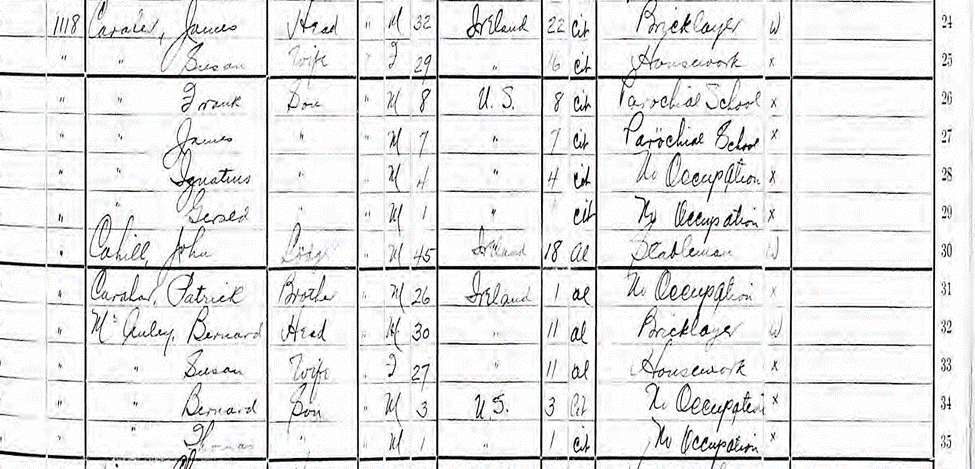 1118 Caraher, James Head " M 32 Ireland 22 cit Bricklayer W 24
" " Susan Wife " F 29 " 16 cit Housework x 25
" " Frank Son " M 8 U.S. 8 cit Parochial School x 26
" " James " " M 7 " 7 cit Parochial School x 27
" " Ignatius " " M 4 " 4 cit No Occupation x 28
" " Gerald " " M 1 " cit No Occupation x 29
" Cahill, John Lodger " M 45 Ireland 18 al Stableman W 30
" Caraher, Patrick Brother " M 26 Ireland 1 al No Occupation x 31
" McAuley, Bernard Head " M 30 " 11 al Bricklayer W 32
" " Susan Wife " F 27 " 11 al Housework x 33
" " Bernard Son " M 3 U.S. 3 Cit No Occupation x 34
" " Thomas " " M 1 " 1 cit No Occupation x 35